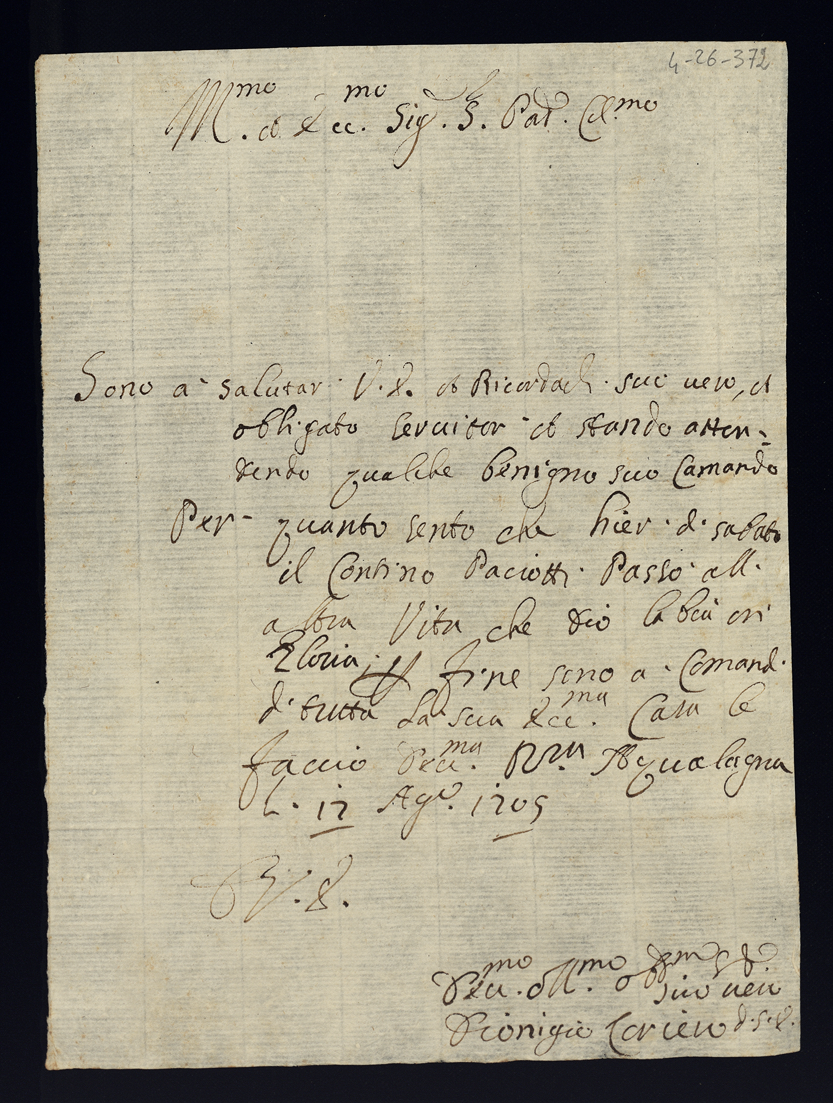 4-26-372
Ill.mo et Ecc.mo Sig. S. Pad. Col.mo
Sono a' salutar V.E. et Ricordarli suo vero, et
obligato servitor et stando atten=
dendo qualche benigno suo Camando
Per quanto sento che hier di sabato
il Contino Paciotti Passò all'
altra Vita che dio labia in
Gloria; fine sono a Comandi
di tutta la sua Ecc.ma Casa le
faccio Rza Aqualagna
L. 17 Ago. 1705
D V.E.
suo vero
Dionigio Coriero d.S.E.